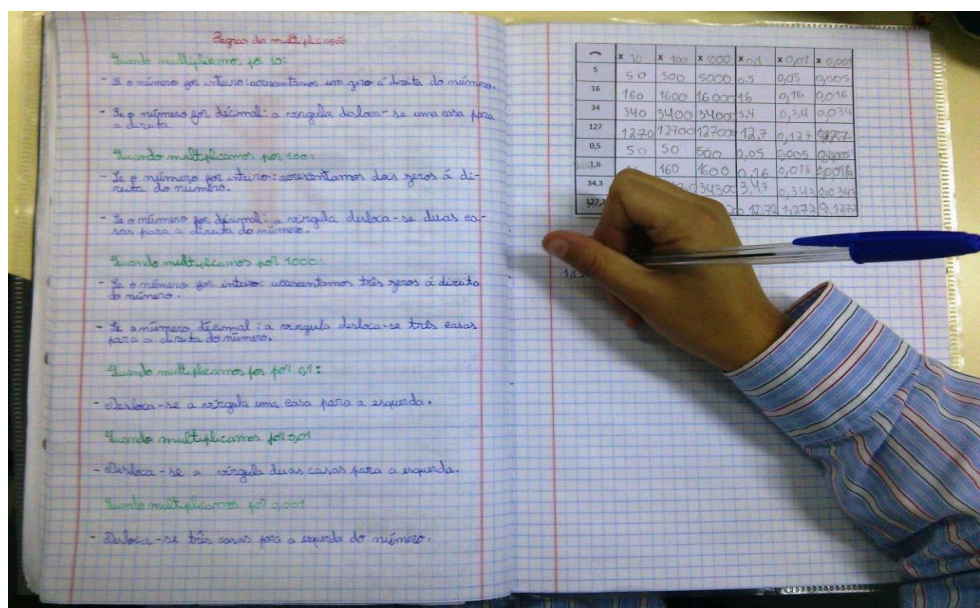 Regras da multiplicação
Quando multiplicamos por 10:
- Se o número for inteiro: acrescentamos um zero á direita do número.
- Se o número for décimal: a vírgula desloca-se uma casa para
a direita
Quando multiplicamos por 100:
- Se o número for inteiro: acrescentamos dois zeros á di-
reita do número.
- Se o número for décimal: a vírgula desloca-se duas ca-
sas para a direita do número.
Quando multiplicamos por 1000:
- Se o número for inteiro: acrescentamos três zeros á direita
do número.
- Se o número décimal: a vírgula desloca-se três casas
para a direita do número.
Quando multiplicamos por 0,1:
- Desloca-se a vírgula uma casa para a esquerda.
Quando multiplicamos por 0,01
- Desloca-se a vírgula duas casas para a esquerda.
Quando multiplicamos por 0,001
- Desloca-se três casas para a esquerda do número.
x 10 x 100 x 1000 x 0,1 x 0,01 x 0,001
5 50 500 5000 0,5 0,05 0,005
16 160 1600 16000 1,6 0,16 0,016
34 340 3400 3400 3,4 0,34 0,034
127 1270 12700 12700 12,7 0,127
0,5 50 50 500 0,05 0,005
1,6 160 1600 0,16 0,016 0,0016
34,3 34300 3,43 0,343 0,0343
127,2 12,72 1,272 0,1272